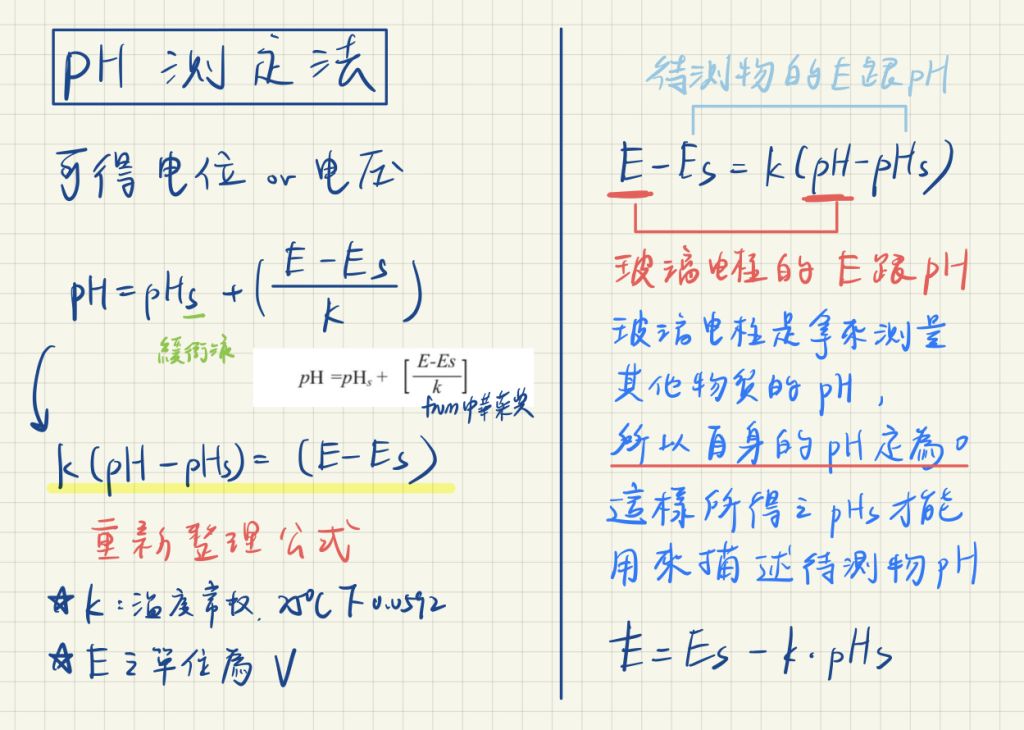 pH 測定法
可得电位 or 电压
pH = pHs + (E - Es / k)
緩衝液
pH =pHs + [E-Es / k]
from中華藥典
k (pH - pHs) = (E - Es)
重新整理公式
☆ k : 溫度常数. 25°C 下 0.0592
☆ E 之單位為 V
待測物的 E 跟 pH
E - Es = k (pH - pHs)
玻璃电柱的 E 跟 pH
玻璃电柱是拿來測量
其他物質的 pH ,
所以自身的 pH 定為 0
這樣所得之 pHs 才能
用來描述待測物 pH
E = Es - k · pHs